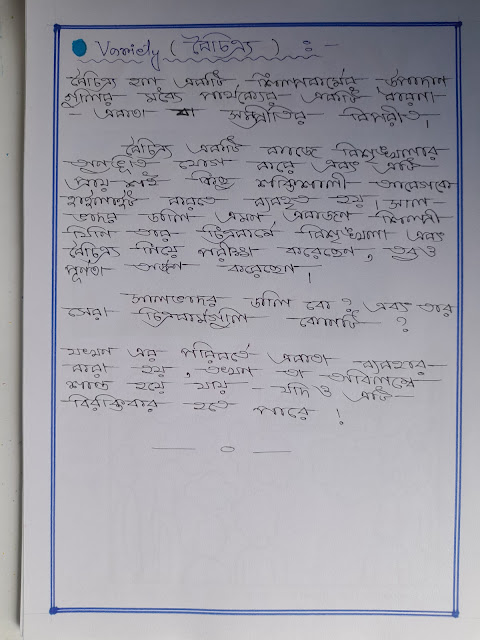 Variety (বৈচিত্র্য) :-
বৈচিত্র্য হল একটি শিল্পকর্মের উপাদান
গুলির মধ্যে পার্থক্যের একটি ধারণা
- একতা বা সম্প্রীতির বিপরীত।
বৈচিত্র্য একটি কাজে বিশৃঙ্খলার
অনুভূতি যোগ করে এবং এটি
প্রায়শই কিছু শক্তিশালী আবেগকে
হাইলাইট করতে ব্যবহৃত হয়। সাল-
ভাদর ডালি এমন একজন শিল্পী
যিনি তার চিত্রকর্মে বিশৃঙ্খলা এবং
বৈচিত্র্য নিয়ে পরীক্ষা করেছেন, তবুও
পূর্ণতা অর্জন করেছেন।
সালভাদর ডালি কে? এবং তার
সেরা চিত্রকর্মগুলি কোনটি ?
যখন এর পরিবর্তে একতা ব্যবহার
করা হয়, তখন তা অবিলম্বে
শান্ত হয়ে যায় - যদিও এটি
বিরক্তিকর হতে পারে।